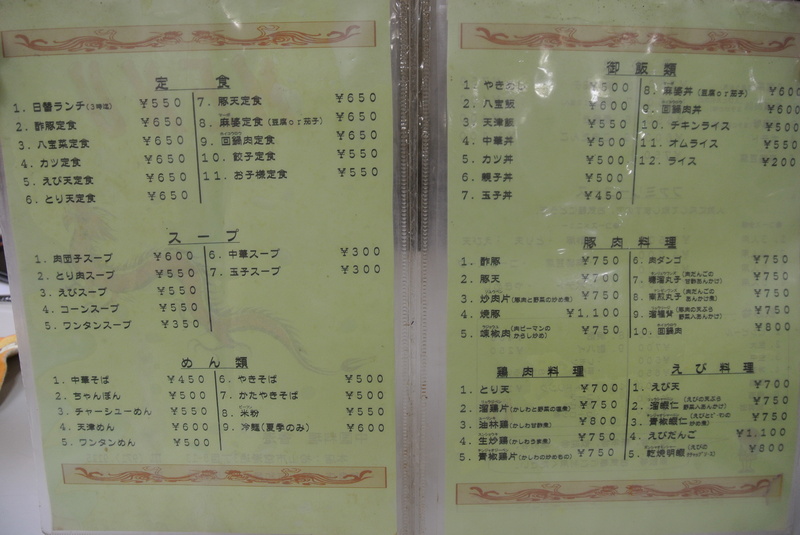 定 食
1. 日替ランチ(3時迄) ￥550
2. 酢豚定食 ￥650
3. 八宝菜定食 ￥650
4. カツ定食 ￥650
5. えび天定食 ￥650
6. とり天定食 ￥650
7. 豚天定食 ￥650
8. 麻婆定食(豆腐or茄子) ￥650
9. 回鍋肉定食 ￥650
10. 餃子定食 ￥550
11. お子様定食 ￥550
スープ
1. 肉団子スープ ￥600
2. とり肉スープ ￥550
3. えびスープ ￥550
4. コーンスープ ￥550
5. ワンタンスープ ￥350
6. 中華スープ ￥300
7. 玉子スープ ￥300
めん類
1. 中華そば ￥450
2. ちゃんぽん ￥500
3. チャーシューめん ￥550
4. 天津めん ￥600
5. ワンタンめん ￥500
6. やきそば ￥500
7. かたやきそば ￥500
8. 米粉 ￥550
9. 冷麺(夏季のみ) ￥600
御飯類
1. やきめし ￥500
2. 八宝飯 ￥600
3. 天津飯 ￥550
4. 中華丼 ￥500
5. カツ丼 ￥500
6. 親子丼 ￥500
7. 玉子丼 ￥450
8. 麻婆丼(豆腐or茄子) ￥600
9. 回鍋肉丼 ￥600
10. チキンライス ￥500
11. オムライス ￥550
12. ライス ￥200
豚肉料理
1. 酢豚 ￥750
2. 豚天 ￥700
3. 炒肉片(豚肉と野菜の炒め煮) ￥750
4. 焼豚 ￥1,100
5. 辣椒肉(肉ピーマンのからし炒め) ￥750
6. 肉ダンゴ ￥750
7. 糖溜丸子(肉だんごの甘酢あんかけ) ￥750
8. 東煎丸子(肉だんごのあんかけ煮) ￥750
9. (豚肉の天ぷら野菜入あんかけ) ￥750
10. 回鍋肉 ￥800
鶏肉料理
1. とり天 ￥700
2. 溜鶏片(かしわと野菜の塩煮) ￥750
3. 油林鶏(かしわ甘酢煮) ￥800
4. 生炒鶏(かしわうま煮) ￥750
5. 青椒鶏片(かしわの炒めもの) ￥750
えび料理
1. えび天 ￥700
2. 溜蝦仁(えびの天ぷら野菜入あんかけ) ￥750
3. 青椒蝦仁(えびとピーマンの炒め煮) ￥750
4. えびだんご ￥1,100
5. 乾焼明蝦(えびのケチャップソース) ￥800